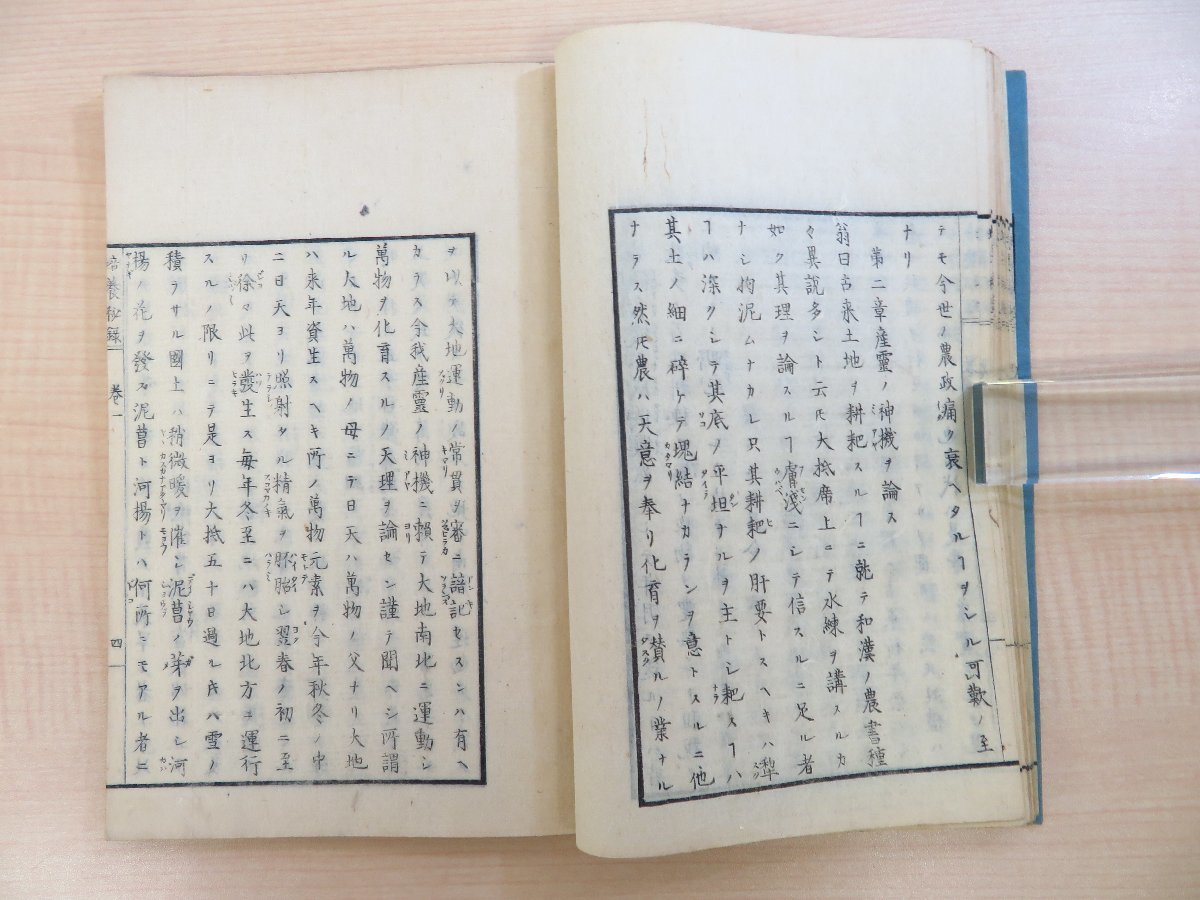 テモ今世ノ農政痛ク衰ヘタルヿヲシル可歎ノ至
ナリ
第二章産靈ノ神機ヲ論ス
翁曰古来土地ヲ耕耙スルヿニ就テ和漢ノ農書種
々異説多シト云𪜈大抵席上ニテ水練ヲ講スルカ
如ク其理ヲ論スルヿ膚浅ニシテ信スルニ足ル者
ナシ拘泥ムナカレ只其耕耙ノ肝要トスヘキハ犂
ヿハ深クシテ其底ノ平坦ナルヲ主トシ耙スヿハ
其土ノ細ニ砕ケテ塊結ナカランヲ意トスルニ他
ナラス然𪜈農ハ天意ヲ奉リ化育ヲ賛ルノ業ナル
ヲ以テ大地運動ノ常貫ヲ審ニ諳記セスンハ有ヘ
カラス今我産靈ノ神機ニ頼テ大地南北ニ運動シ
萬物ヲ化育スルノ天理ヲ論セン謹テ聞ヘシ所謂
ル大地ハ萬物ノ母ニテ日天ハ萬物ノ父ナリ大地
ハ来年資生スヘキ所ノ萬物元素ヲ今年秋冬ノ中
ニ日天ヨリ照射タル精氣ヲ胚胎シ翌春ノ初ニ至
リ徐々此ヲ發生ス毎年冬至ニハ大地北方ニ運行
スルノ限リニテ是ヨリ大抵五十日過ル𪜈ハ雪ノ
積ラサル國土ハ稍微暖ヲ催シ泥菖ノ芽ヲ出シ河
楊ノ花ヲ發ス泥菖ト河楊トハ何所ニモアル者ニ
培養秘録 卷一 四